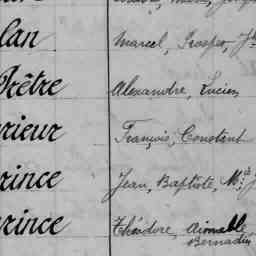 lan Marcel, Prosper, J
Prêtre Alexandre, Lucien
rieur François, Constant
rince Jean, Baptiste, M
rince Théodore, Aimable
Bernadin